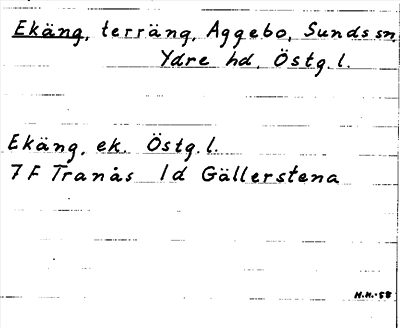 Ekäng, terräng, Aggebo, Sunds sn,
Ydre hd, Östg.l.
Ekäng, ek. Östg.l.
7 F Tranås 1d Gällerstena
H.H.-58